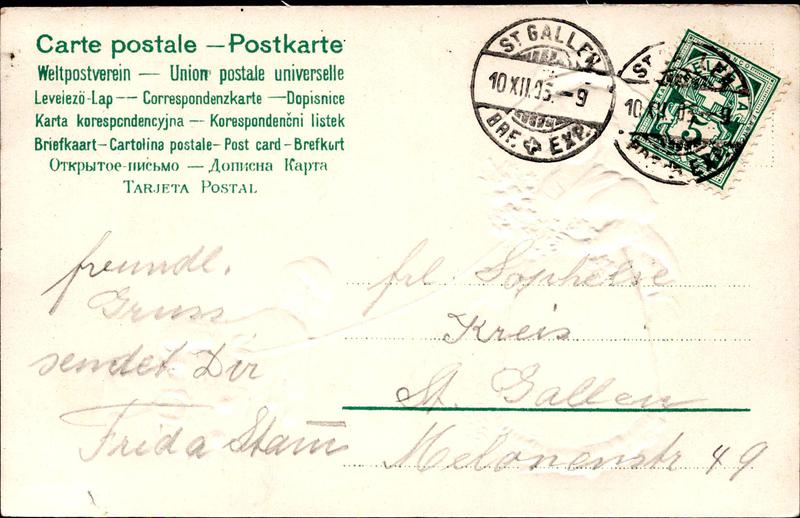 Carte postale — Postkarte
Weltpostverein — Union postale universelle
Leveiező-Lap — Correspondenzkarte — Dopisnice
Karta korespcndencyjna — Korespondenčni listek
Briefkaart — Cartolina postale - Post card - Brefkort
Открытое-письмо — Дописна Карта
TARJETA POSTAL
ST GALLEN
10 XII.05.-9
BRF. EXP.
5
freundl.
Gruss
sendet Dir
Frida
frl Sophelise
Kreis
St. Gallen
Melonenstr 49